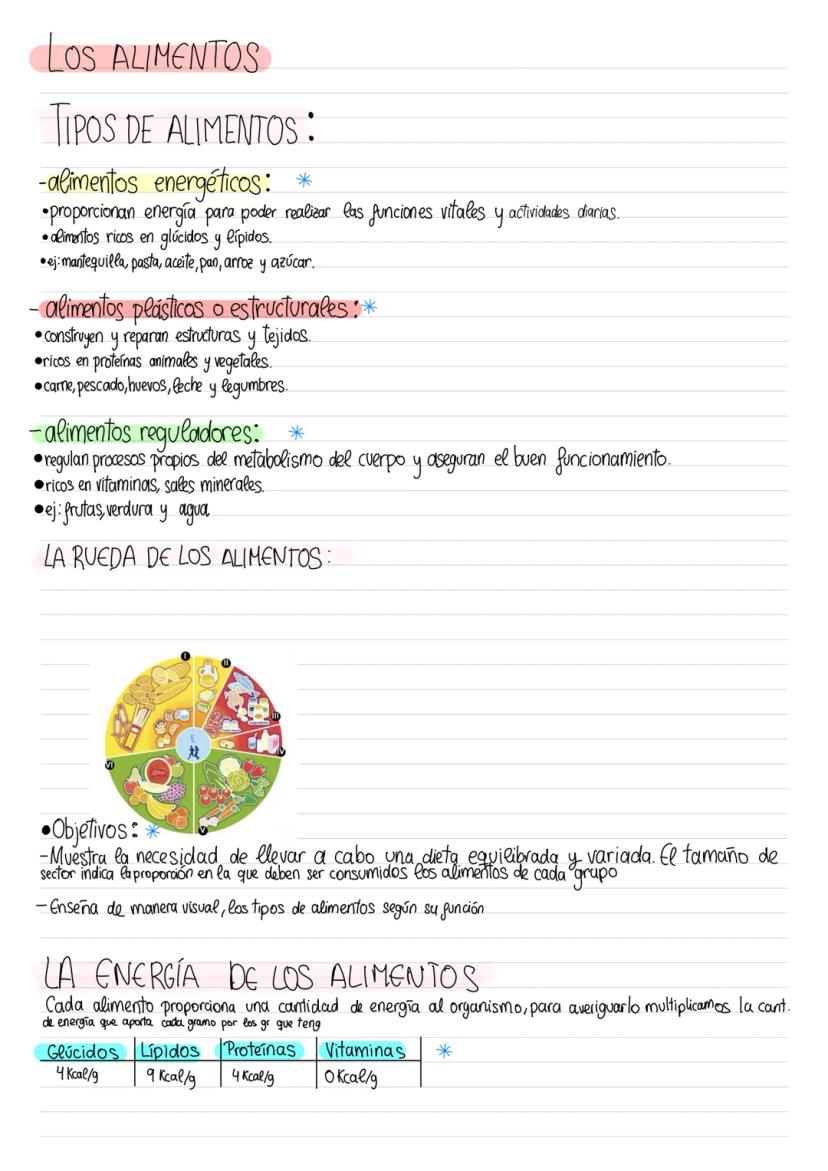 LOS ALIMENTOS
TIPOS DE ALIMENTOS:
-alimentos energéticos: *
•proporcionan energía para poder realizar las funciones vitales y actividades diarias.
•alimentos ricos en glúcidos y lípidos.
•ej:mantequilla, pasta, aceite, pan, arroz y azúcar.
- alimentos plásticos o estructurales: *
•construyen y reparan estructuras y tejidos.
•ricos en proteínas animales y vegetales.
•carne, pescado, huevos, leche y legumbres.
-alimentos reguladores: *
•regulan procesos propios del metabolismo del cuerpo y aseguran el buen funcionamiento.
•ricos en vitaminas, sales minerales.
•ej: frutas, verdura y agua
LA RUEDA DE LOS ALIMENTOS:
I
II
III
IV
VI
V
•Objetivos: *
-Muestra la necesidad de llevar a cabo una dieta equilibrada y variada. El tamaño de
sector indica la proporción en la que deben ser consumidos los alimentos de cada grupo
- Enseña de manera visual, los tipos de alimentos según su función
LA ENERGÍA DE LOS ALIMENTOS
Cada alimento proporciona una cantidad de energía al organismo, para averiguarlo multiplicamos la cant.
de energía que aporta cada gramo por los gr que teng
Glúcidos Lípidos Proteínas Vitaminas *
4 Kcal/g 9 Kcal/g 4 Kcal/g 0 Kcal/g